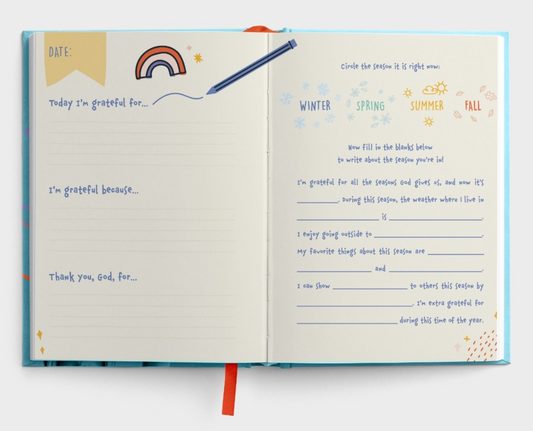 DATE:
Today I'm grateful for...
I'm grateful because...
Thank you, God, for...
Circle the season it is right now:
WINTER SPRING SUMMER FALL
Now fill in the blanks below
to write about the season you're in!
I'm grateful for all the seasons God gives us, and now it's
____________. During this season, the weather where I live in
____________ is ____________.
I enjoy going outside to ____________.
My favorite things about this season are ____________
____________ and ____________.
I can show ____________ to others this season by
____________. I'm extra grateful for
____________ during this time of the year.